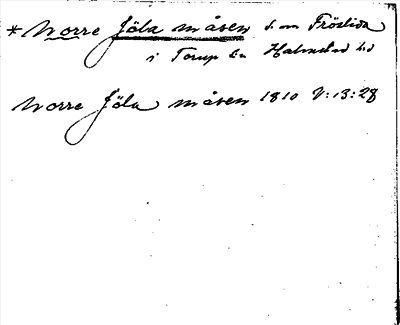 * Norre Jöla måsen s. om Fröslida
i Torup sn Halmstad hd
Norre Jöla måsen 1810 V:13:28